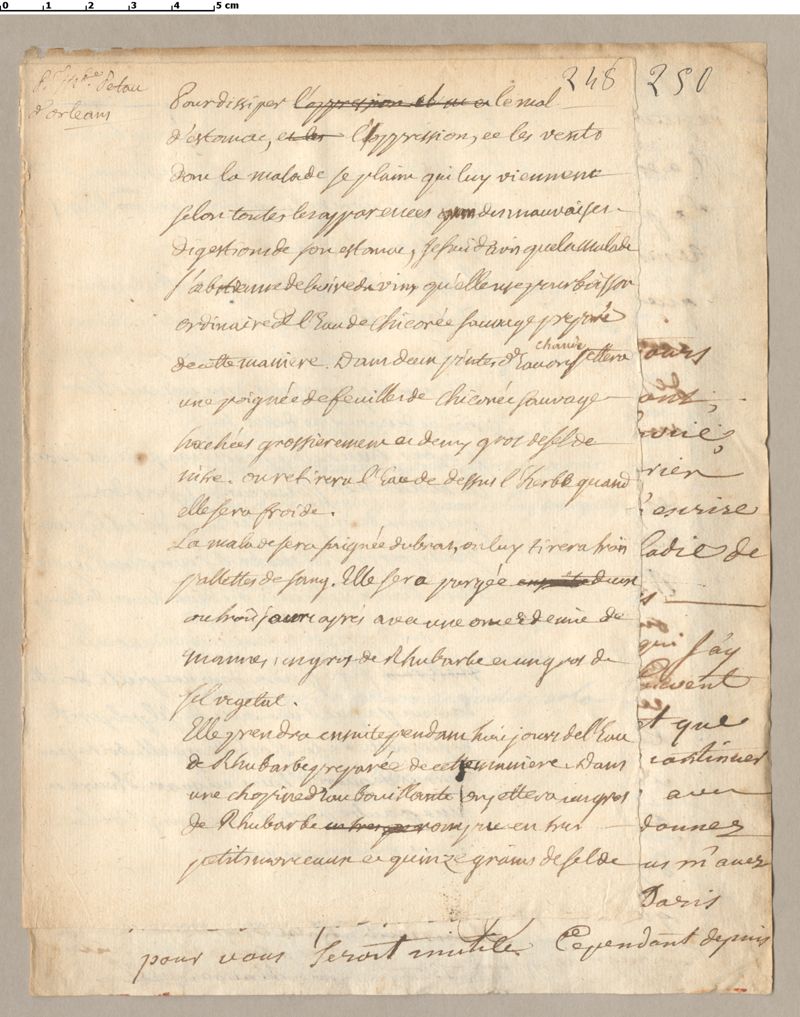 0 1 2 3 4 5 cm
248 250
d'orleans
Pour dissiper l'oppression et le mal
d'estomac, et les l'oppression, et les vents
dont la malade se plaint qui luy viennent
selon toutes les apparences des mauvaises
digestions de son estomac, je suis d'avis que la malade
s'abstienne de boire du vin, qu'elle use pour boisson
ordinaire de l'Eau de Chicorée sauvage preparée
de cette maniere. Dans deux pintes d'Eau chaude on jettera
une poignée de feuilles de Chicorée sauvage
hachées grossierement et demy gros de sel de
nitre. on retirera l'Eau de dessus l'herbe quand
elle sera froide.
La malade sera saignée du bras, on luy tirera trois
pallettes de sang. Elle sera purgée deux
ou trois jours aprés avec une once et demie de
mannes, un gros de Rhubarbe et un gros de
sel vegetal.
Elle prendra ensuite pendant huit jours de l'Eau
de Rhubarbe preparée de cette maniere. Dans
une chopine d'Eau bouillante on jettera un gros
de Rhubarbe rompue en trois
petits morceaux et quinze grains de sel de
ours
ont
rier
ladie de
qui j'ay
uvent
et que
continuer
avec
donnez
us m'avez
Paris
pour vous seroit inutile Cependant depuis